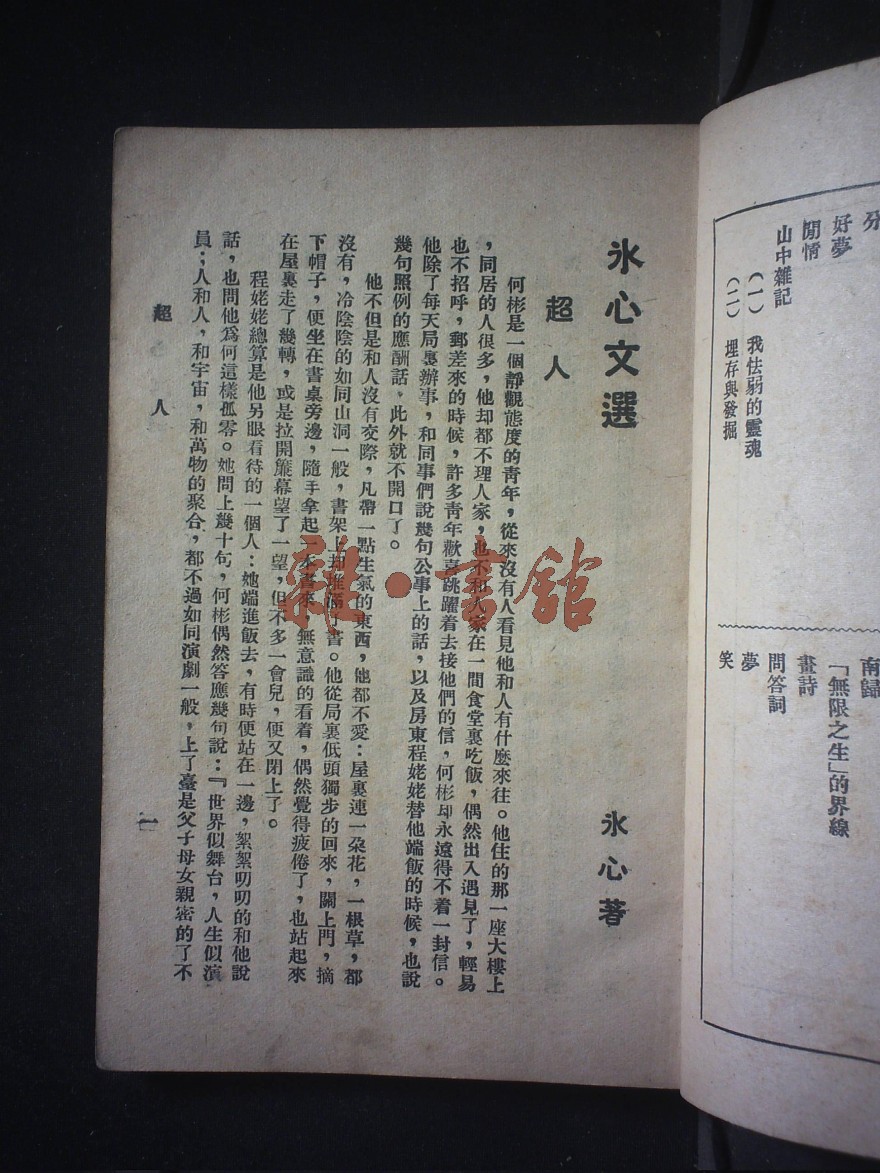 分
好夢
閒情
山中雜記
(一) 我怯弱的靈魂
(二) 埋存與發掘
南歸
「無限之生」的界線
畫詩
問答詞
夢
笑
氷心文選
氷心著
超人
何彬是一個靜觀態度的青年，從來沒有人看見他和人有什麼來往。他住的那一座大樓上
，同居的人很多，他却都不理人家，也不和人家在一間食堂裏吃飯，偶然出入遇見了，輕易
也不招呼，郵差來的時候，許多青年歡喜跳躍着去接他們的信，何彬却永遠得不着一封信。
他除了每天局裏辦事，和同事們說幾句公事上的話，以及房東程姥姥替他端飯的時候，也說
幾句照例的應酬話，此外就不開口了。
他不但是和人沒有交際，凡帶一點生氣的東西，他都不愛：屋裏連一朶花，一根草，都
沒有，冷陰陰的如同山洞一般，書架上却堆滿了書。他從局裏低頭獨步的回來，關上門，摘
下帽子，便坐在書桌旁邊，隨手拿起一本書來，無意識的看着，偶然覺得疲倦了，也站起來
在屋裏走了幾轉，或是拉開簾幕望了一望，但不多一會兒，便又閉上了。
程姥姥總算是他另眼看待的一個人：她端進飯去，有時便站在一邊，絮絮叨叨的和他說
話，也問他爲何這樣孤零。她問上幾十句，何彬偶然答應幾句說：『世界似舞台，人生似演
員；人和人，和宇宙，和萬物的聚合，都不過如同演劇一般，上了臺是父子母女親密的了不
超人
一
雜·書館